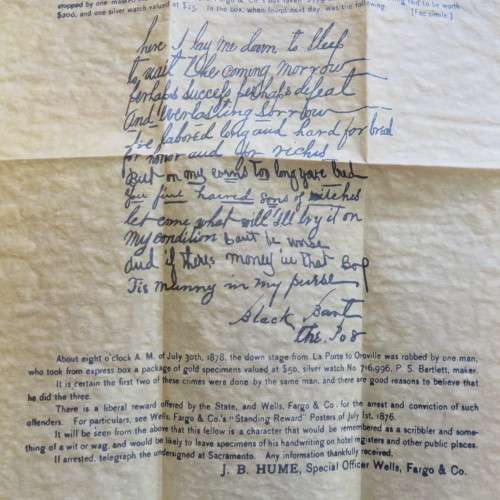 stopped by one masked
$200, and one silver watch valued at $25. In the box, when found next day, was the following
[Fac simile.]
here I lay me down to Sleep
to wait the coming morrow
perhaps success perhaps defeat
and everlasting sorrow
I've labored long and hard for bred
for honor and for riches
But on my corns too long youve tred
You fine haired sons of Bitches
let come what will I'll try it on
My condition cant be worse
and if theres money in that Box
Tis munny in my purse
Black Bart
the Po8
About eight o'clock A. M. of July 30th, 1878, the down stage from La Porte to Oroville was robbed by one man,
who took from express box a package of gold specimens valued at $50, silver watch No 716,996, P. S. Bartlett, maker.
It is certain the first two of these crimes were done by the same man, and there are good reasons to believe that
he did the three.
There is a liberal reward offered by the State, and Wells, Fargo & Co. for the arrest and conviction of such
offenders. For particulars, see Wells, Fargo & Co.'s "Standing Reward" Posters of July 1st, 1876.
It will be seen from the above that this fellow is a character that would be remembered as a scribbler and some-
thing of a wit or wag, and would be likely to leave specimens of his handwriting on hotel registers and other public places.
If arrested, telegraph the undersigned at Sacramento. Any information thankfully received.
J. B. HUME, Special Officer Wells, Fargo & Co.